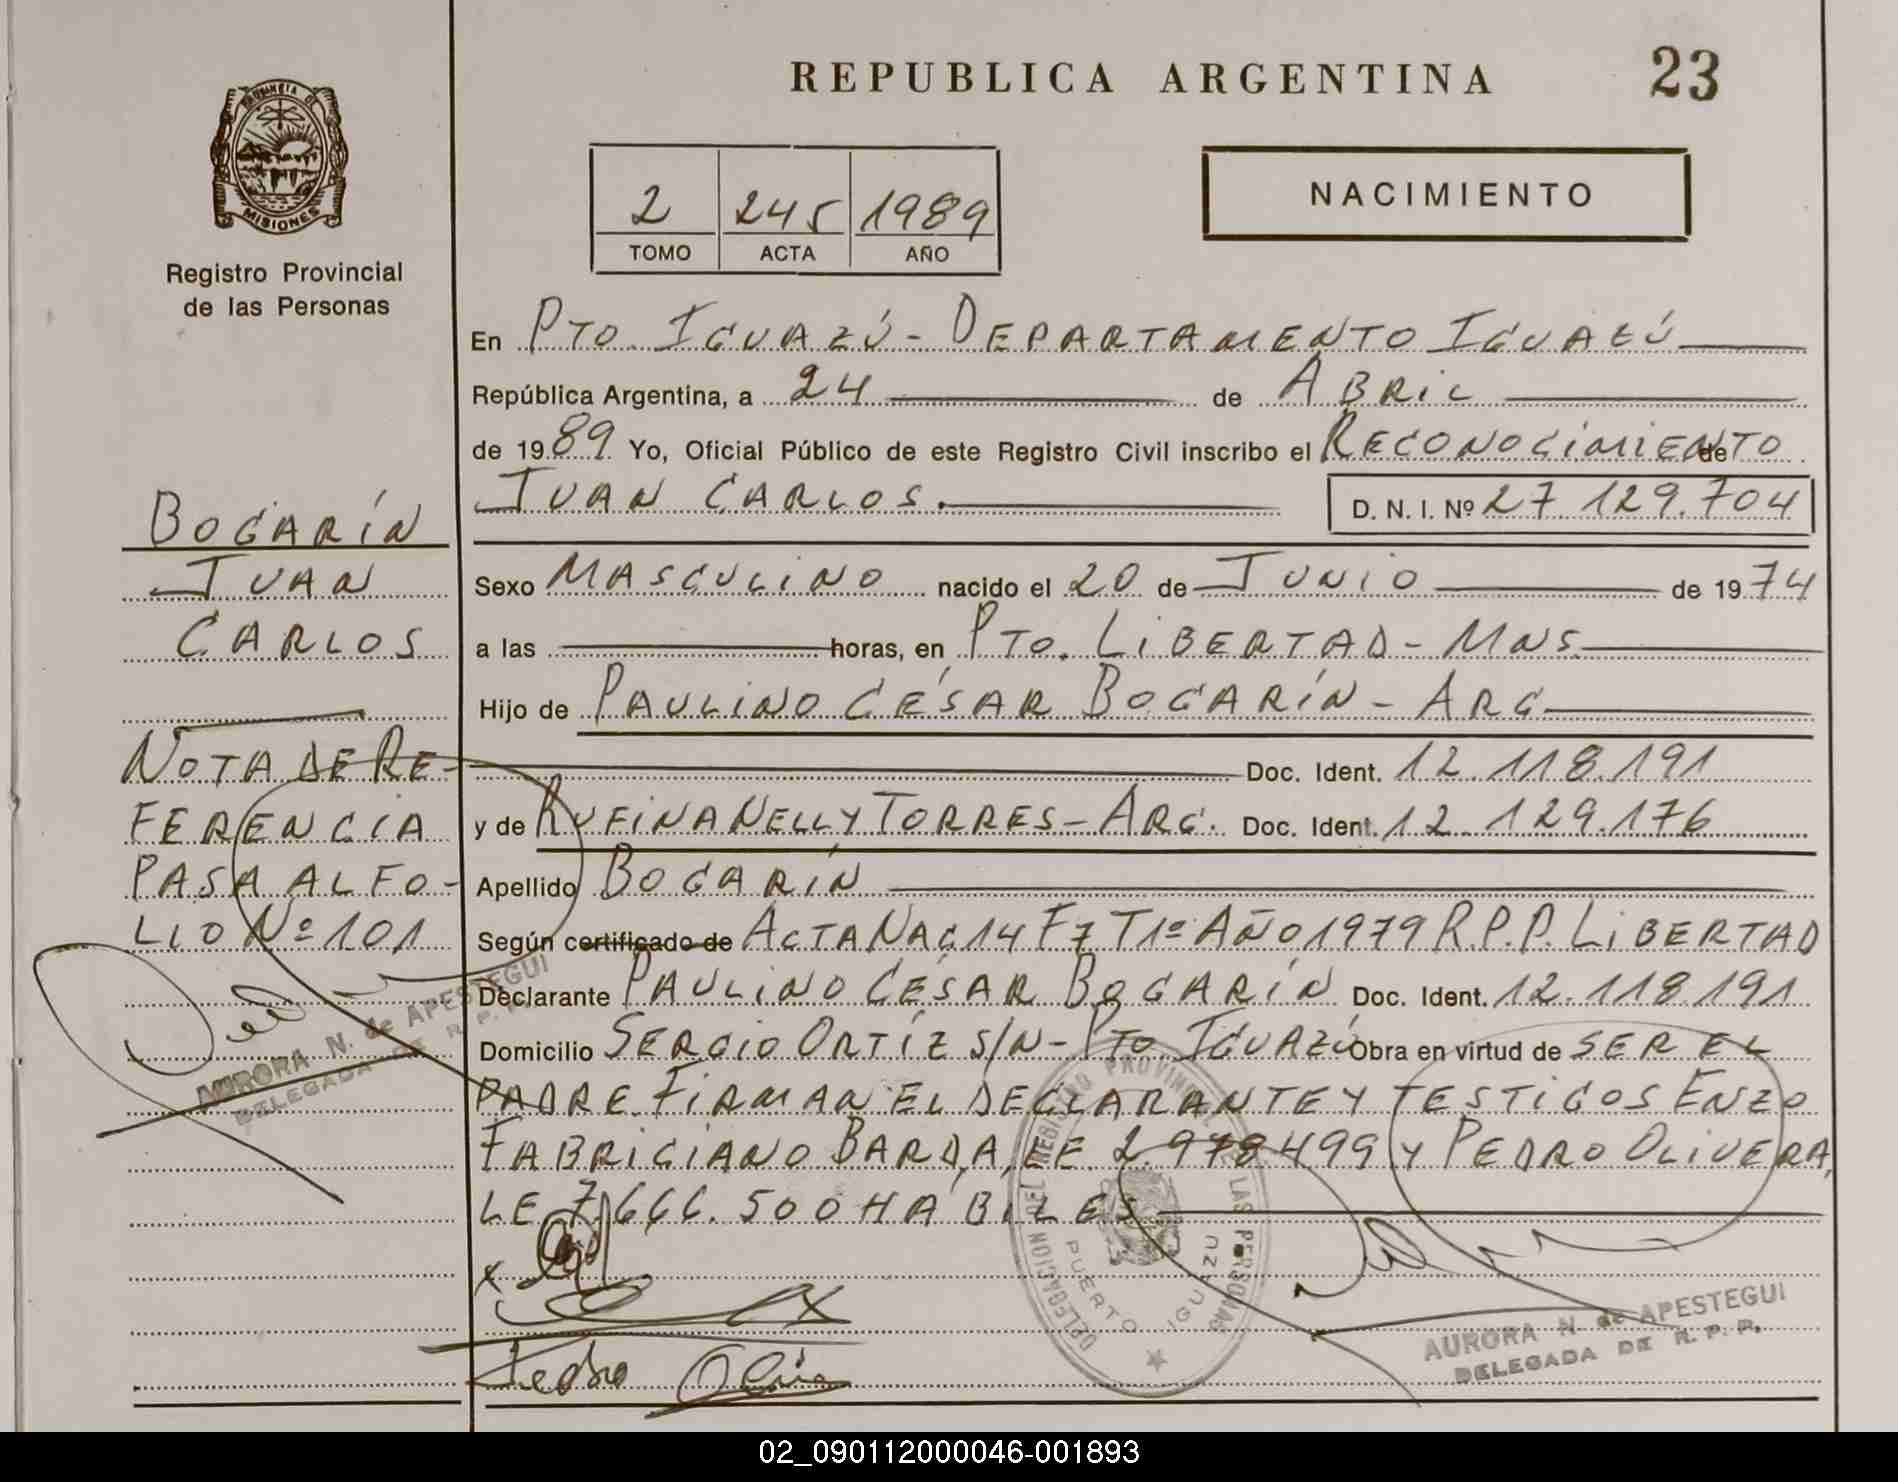 REPUBLICA ARGENTINA
23
PROVINCIA DE
MISIONES
Registro Provincial
de las Personas
2 245 1989
TOMO ACTA AÑO
NACIMIENTO
En PTO. IGUAZÚ - DEPARTAMENTO IGUAZÚ
República Argentina, a 24 de ABRIL
de 1989 Yo, Oficial Público de este Registro Civil inscribo el RECONOCIMIENTO de
JUAN CARLOS. D. N. I. Nº 27.129.704
Sexo MASCULINO nacido el 20 de JUNIO de 1974
a las horas, en PTO. LIBERTAD - MNS.
Hijo de PAULINO CÉSAR BOGARÍN - ARG.
Doc. Ident. 12.118.191
y de RUFINA NELLY TORRES - ARG. Doc. Ident. 12.129.176
Apellido BOGARÍN
Según certificado de ACTA NAC 14 F 7 T 1º AÑO 1979 R.P.P. LIBERTAD
Declarante PAULINO CÉSAR BOGARÍN Doc. Ident. 12.118.191
Domicilio SERGIO ORTÍZ S/N - PTO. IGUAZÚ Obra en virtud de SER EL
PADRE. FIRMAN EL DECLARANTE Y TESTIGOS ENZO
FABRICIANO BARDA, LE 2.978499 Y PEDRO OLIVERA,
LE 7.666.500 HABILES
BOGARÍN
JUAN
CARLOS
NOTA DE RE-
FERENCIA
PASA AL FO-
LIO Nº 101
AURORA N. de APESTEGUI
DELEGADA DE R. P. P.
x
Pedro
DELEGACION DEL REGISTRO PROVINCIAL DE LAS PERSONAS
PUERTO IGUAZU
AURORA N. de APESTEGUI
DELEGADA DE R. P. P.
02_090112000046-001893